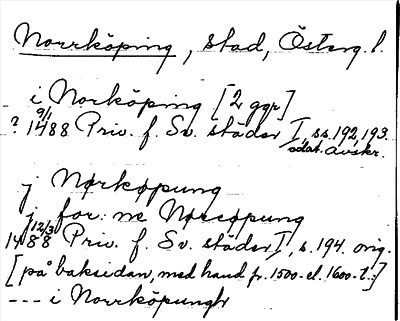 Norrköping, stad, Österg. l.
i Norköping [2 ggr]
? 9/1 1488 Priv. f. Sv. städer I, ss. 192, 193.
odat. avskr.
j Nørkøpung
j for:ne Nørcøpung
12/3 1488 Priv. f. Sv. städer I, s. 194. orig.
[på baksidan, med hand fr. 1500- el. 1600-t.:]
--- i Norrköpungh